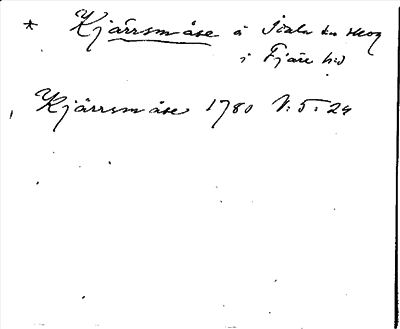 * Kjärrsmåse å Skala km skog
i Fjäre hd
Kjärrsmåse 1780 V: 5: 24